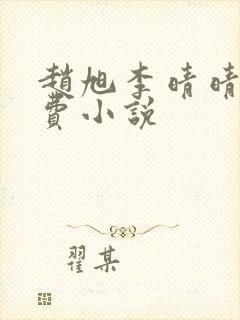 趙旭李晴晴
費小說
翟某